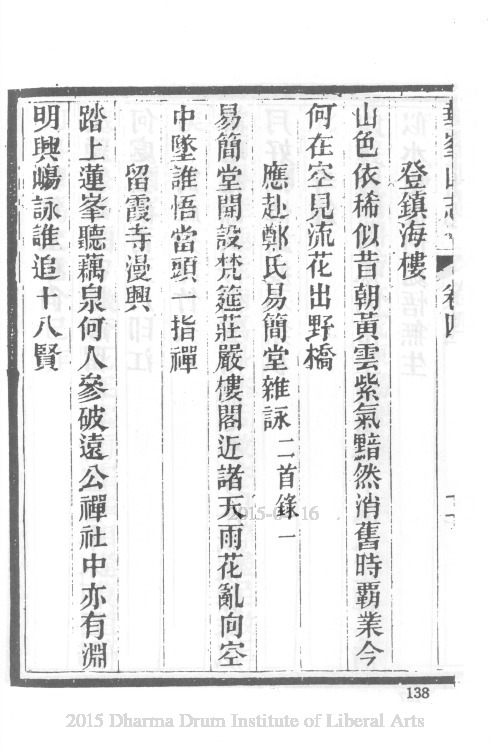 卷四
登鎮海樓
山色依稀似昔朝黃雲紫氣黯然消舊時霸業今
何在空見流花出野橋
應赴鄭氏易簡堂雜詠二首錄一
易簡堂開設梵筵莊嚴樓閣近諸天雨花亂向空
中墜誰悟當頭一指禪
留霞寺漫興
踏上蓮峯聽藕泉何人參破遠公禪社中亦有淵
明興觴詠誰追十八賢
138
2015 Dharma Drum Institute of Liberal Arts